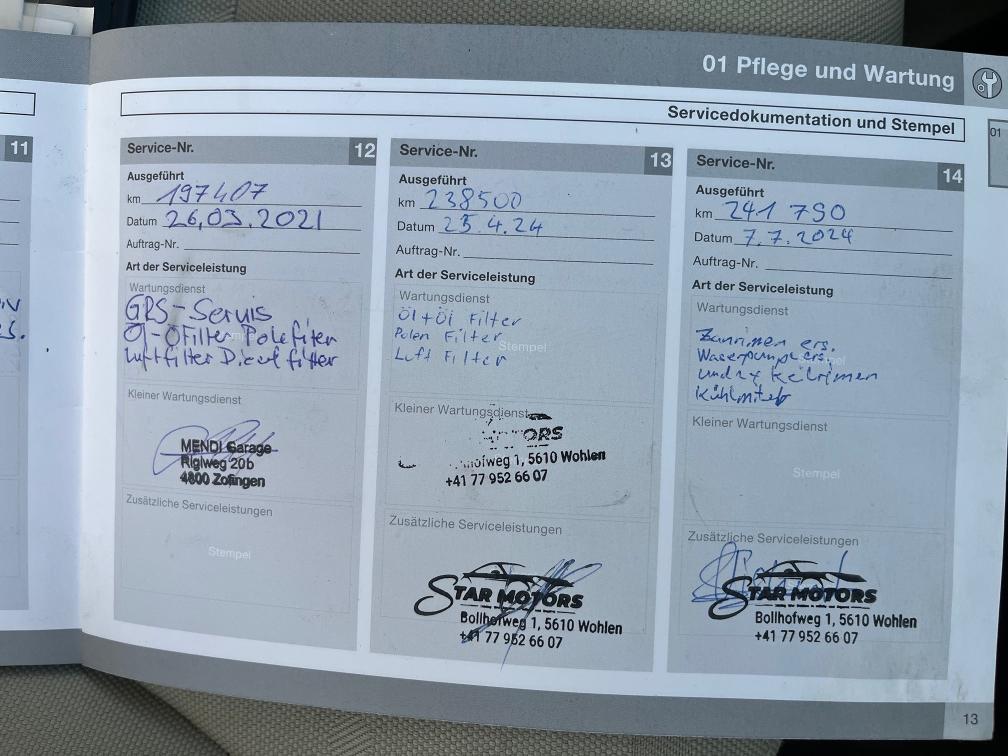 01 Pflege und Wartung
Servicedokumentation und Stempel
01
11
Service-Nr. 12
Ausgeführt
km 197407
Datum 26.03.2021
Auftrag-Nr.
Art der Serviceleistung
Wartungsdienst
GRS-Servis
Öl-ÖFilter Polefilter
Luftfilter Diesel filter
Kleiner Wartungsdienst
MENDI Garage
Riglweg 20b
4800 Zofingen
Zusätzliche Serviceleistungen
Stempel
Service-Nr. 13
Ausgeführt
km 238500
Datum 25.4.24
Auftrag-Nr.
Art der Serviceleistung
Wartungsdienst
Öl + Öl Filter
Polen Filter
Stempel
Luft Filter
Kleiner Wartungsdienst
5610 Wohlen
+41 77 952 66 07
Zusätzliche Serviceleistungen
STAR MOTORS
Bollhofweg 1, 5610 Wohlen
+41 77 952 66 07
Service-Nr. 14
Ausgeführt
km 241 790
Datum 7.7.2024
Auftrag-Nr.
Art der Serviceleistung
Wartungsdienst
Zanrimen ers.
Waserpump ers.
und 2x Keilrimen
Kühlmitel
Kleiner Wartungsdienst
Stempel
Zusätzliche Serviceleistungen
STAR MOTORS
Bollhofweg 1, 5610 Wohlen
+41 77 952 66 07
13